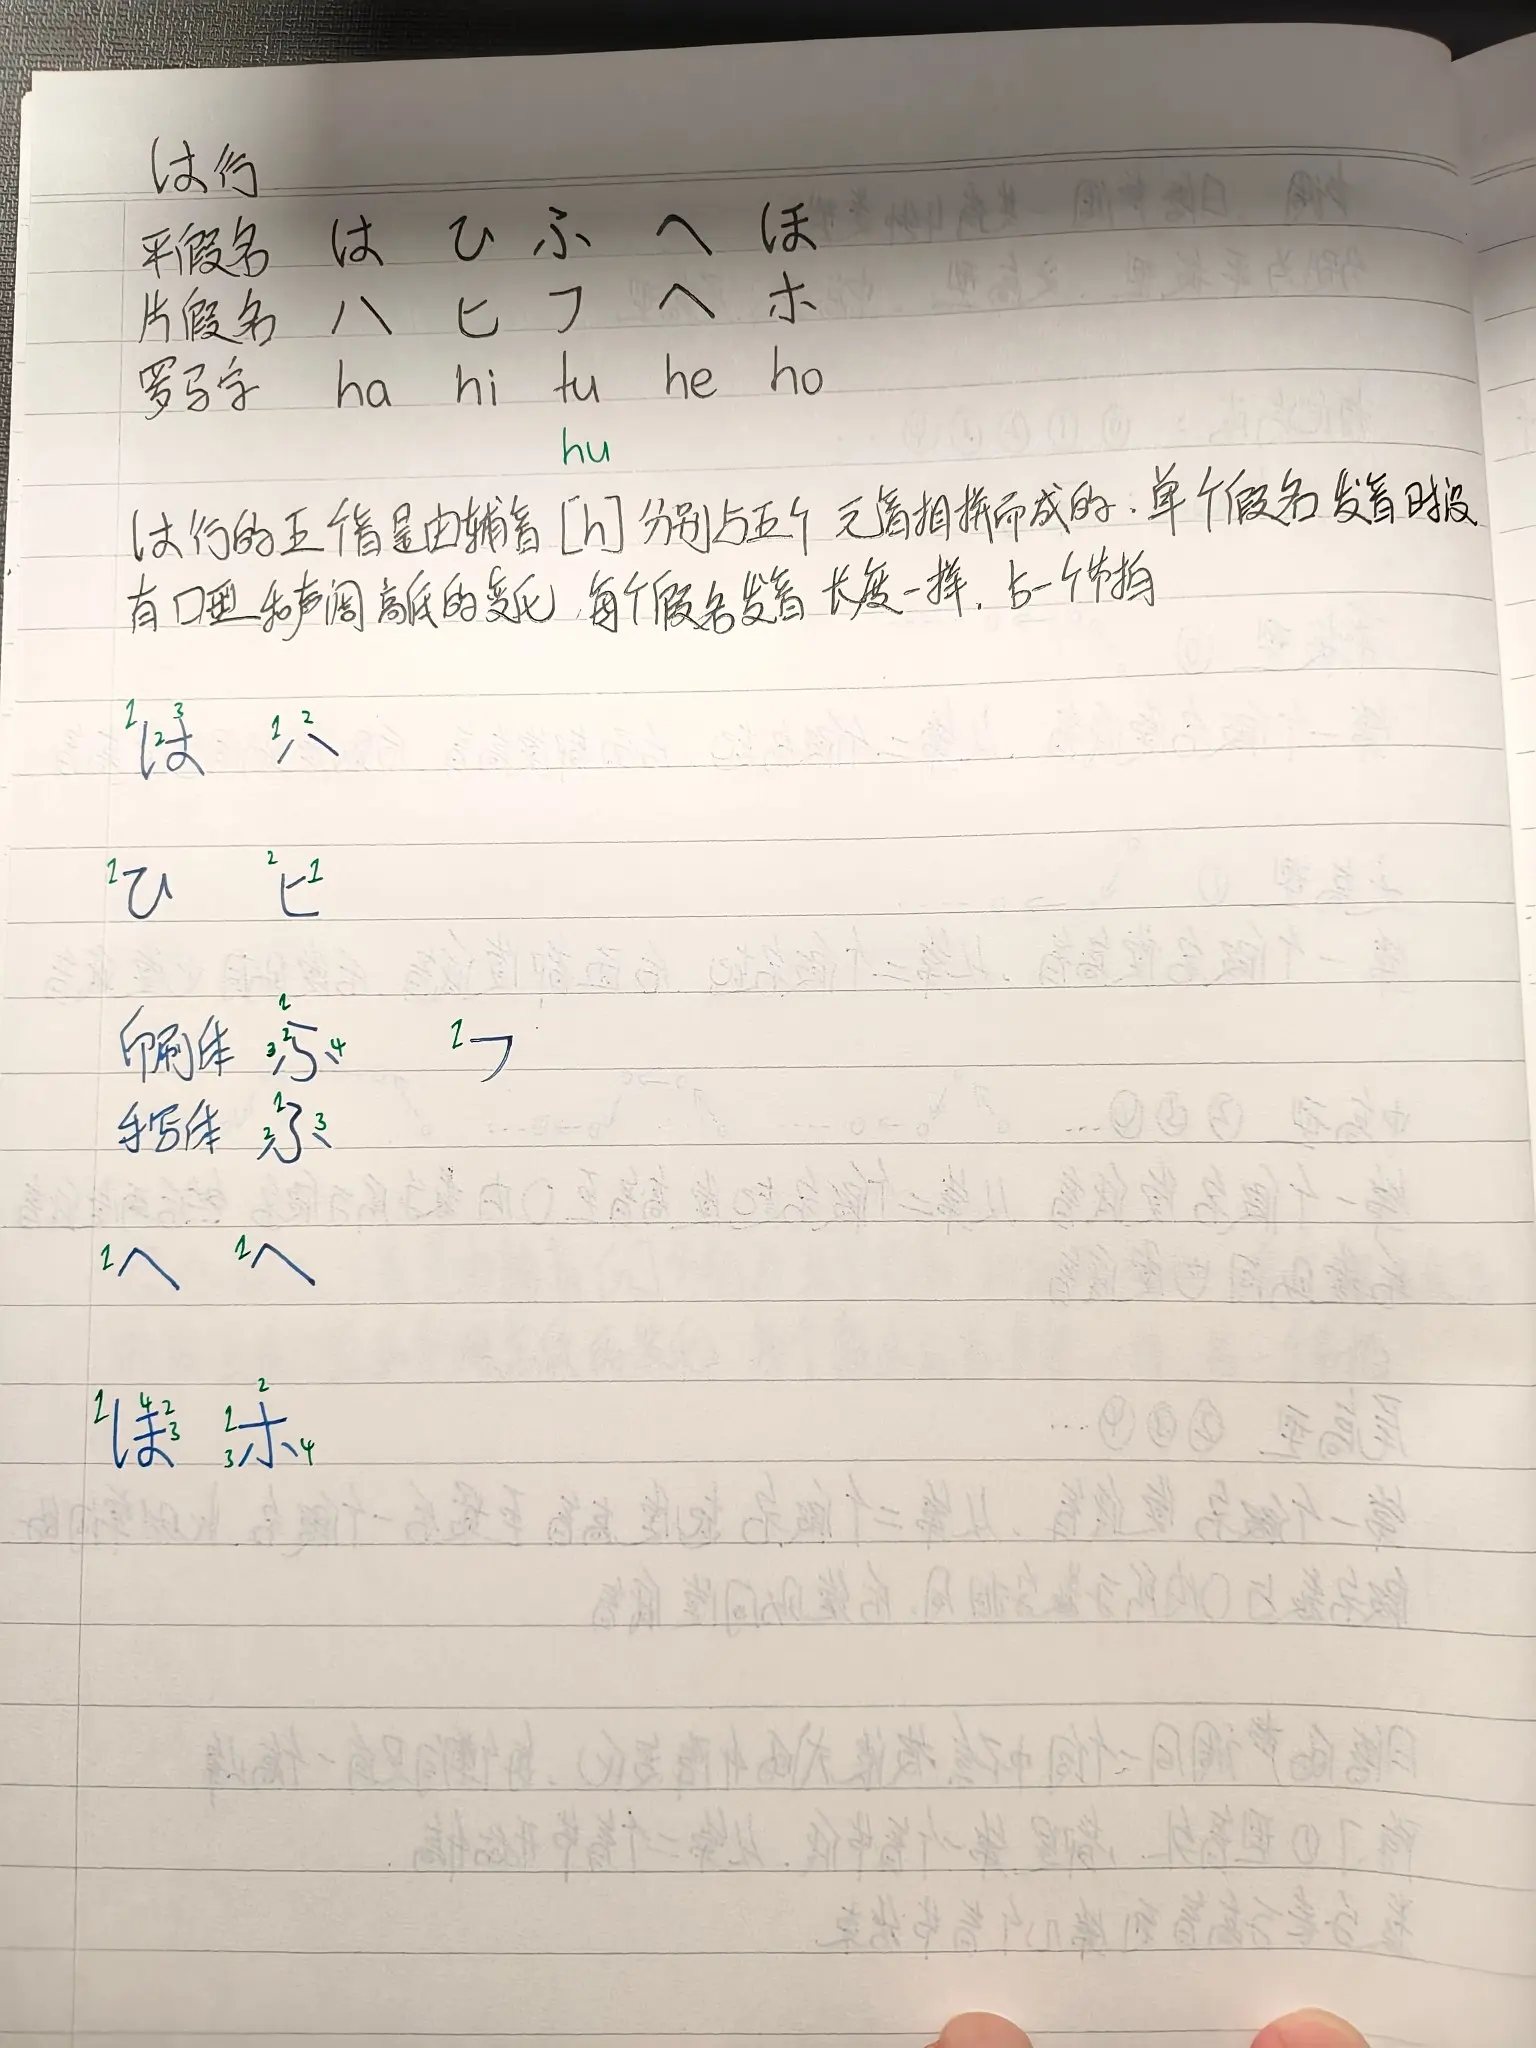 は行
平假名 は ひ ふ へ ほ
片假名 ハ ヒ フ ヘ ホ
罗马字 ha hi fu he ho
hu
は行的五个音是由辅音[h]分别与五个元音相拼而成的.单个假名发音时没
有口型和声调高低的变化,每个假名发音长度一样,占一个节拍
1 2 3 は 1 2 ハ
1 ひ 2 1 ヒ
印刷体 1 2 3 4 ふ 1 フ
手写体 1 2 3 ふ
1 へ 1 ヘ
1 4 2 3 ほ 1 2 3 4 ホ